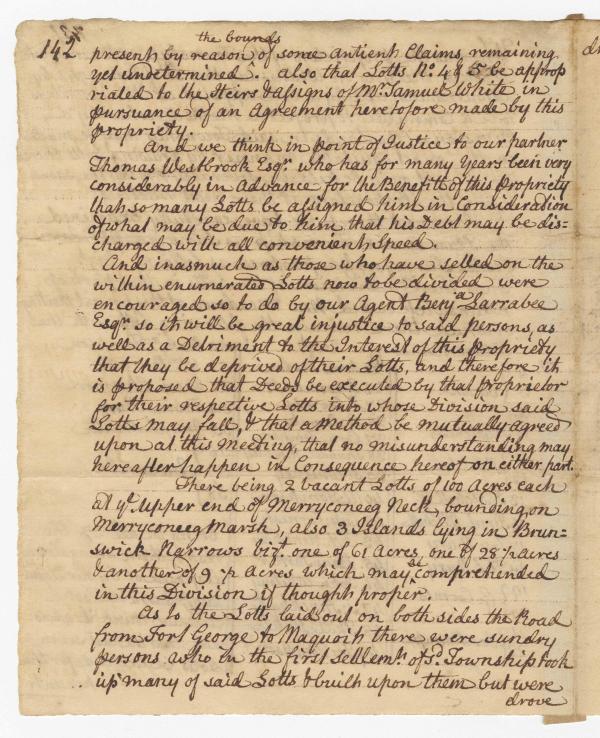 142
the bounds
present by reason of some antient Claims, remaining
yet undetermined. also that Lotts No. 4 & 5 be approp
riated to the Heirs & assigns of Mr. Samuel White in
pursuance of an Agreement heretofore made by this
propriety.
And we think in point of Justice to our partner
Thomas Westbrook Esqr. who has for many Years been very
considerably in Advance for the Benefitt of this Propriety
that so many Lotts be assigned him in Consideration
of what may be due to him that his Debt may be dis=
charged with all convenient Speed.
And inasmuch as those who have setled on the
within enumerated Lotts now to be divided were
encouraged so to do by our Agent Benja. Larrabee
Esqr. so it will be great injustice to said persons, as
well as a Detriment to the Interest of this propriety
that they be deprived of their Lotts, and therefore it
is proposed that Deeds be executed by that proprietor
for their respective Lotts into whose Division said
Lotts may fall, & that a Method be mutually agreed
upon at this Meeting, that no misunderstanding may
hereafter happen in Consequence hereof on either part.
There being 2 vacant Lotts of 100 Acres each
at ye. upper end of Merryconeeg Neck, bounding on
Merryconeeg Marsh, also 3 Islands lying in Brun=
swick Narrows vizt. one of 61 acres, one of 28 acres
& another of 9 Acres which may be comprehended
in this Division if thought proper.
As to the Lotts laid out on both sides the Road
from Fort George to Maquoit there were sundry
persons who in the first settlemt. of sd. Township took
up many of said Lotts & built upon them but were
drove